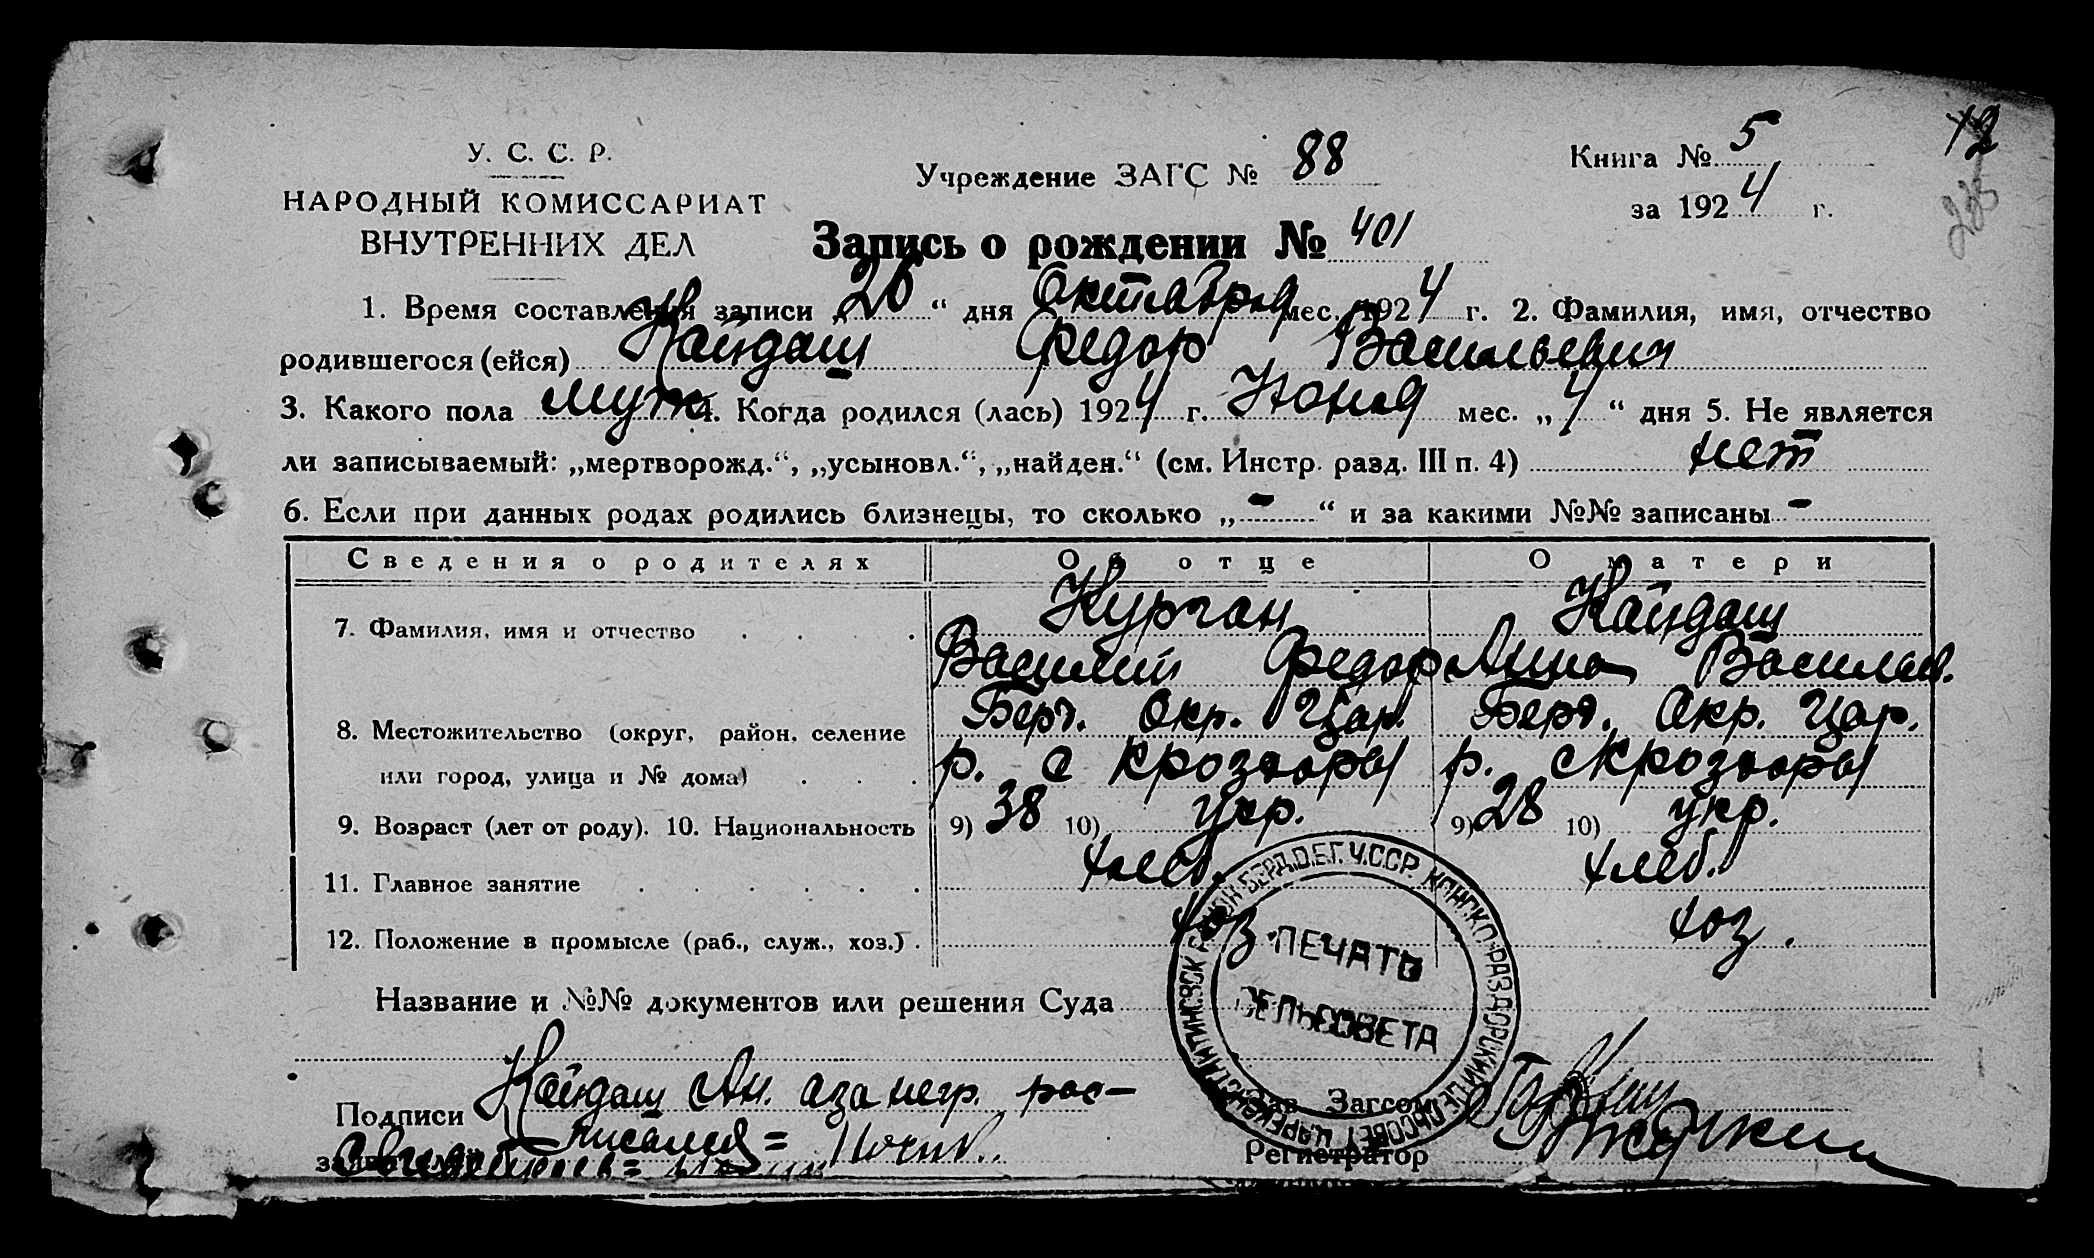 У. С. С. Р.
НАРОДНЫЙ КОМИССАРИАТ
ВНУТРЕННИХ ДЕЛ
Учреждение ЗАГС № 88
Книга № 5
за 1924 г.
12
Запись о рождении № 401
1. Время составления записи „20“ дня Октября мес. 1924 г. 2. Фамилия, имя, отчество
родившегося (ейся) Кайдаш Федор Васильевич
3. Какого пола муж 4. Когда родился (лась) 1924 г. Июня мес. „4“ дня 5. Не является
ли записываемый: „мертворожд.“, „усыновл.“, „найден.“ (см. Инстр. разд. III п. 4) нет
6. Если при данных родах родились близнецы, то сколько „-“ и за какими №№ записаны -
Сведения о родителях Об отце О матери
7. Фамилия, имя и отчество Курган Кайдаш
Василий Федор Анна Василев.
8. Местожительство (округ, район, селение Берд. Окр. Цар. Берд. Окр. Цар.
или город, улица и № дома) р. с Кроздоры р. с Кроздоры
9. Возраст (лет от роду). 10. Национальность 9) 38 10) укр. 9) 28 10) укр.
11. Главное занятие хлеб. хлеб.
12. Положение в промысле (раб., служ., хоз.) хоз хоз.
Название и №№ документов или решения Суда
ПЕЧАТЬ
СЕЛЬСОВЕТА
Подписи Кайдаш Ан. а за негр. рос-
писался =
Зав. Загсом
Регистратор